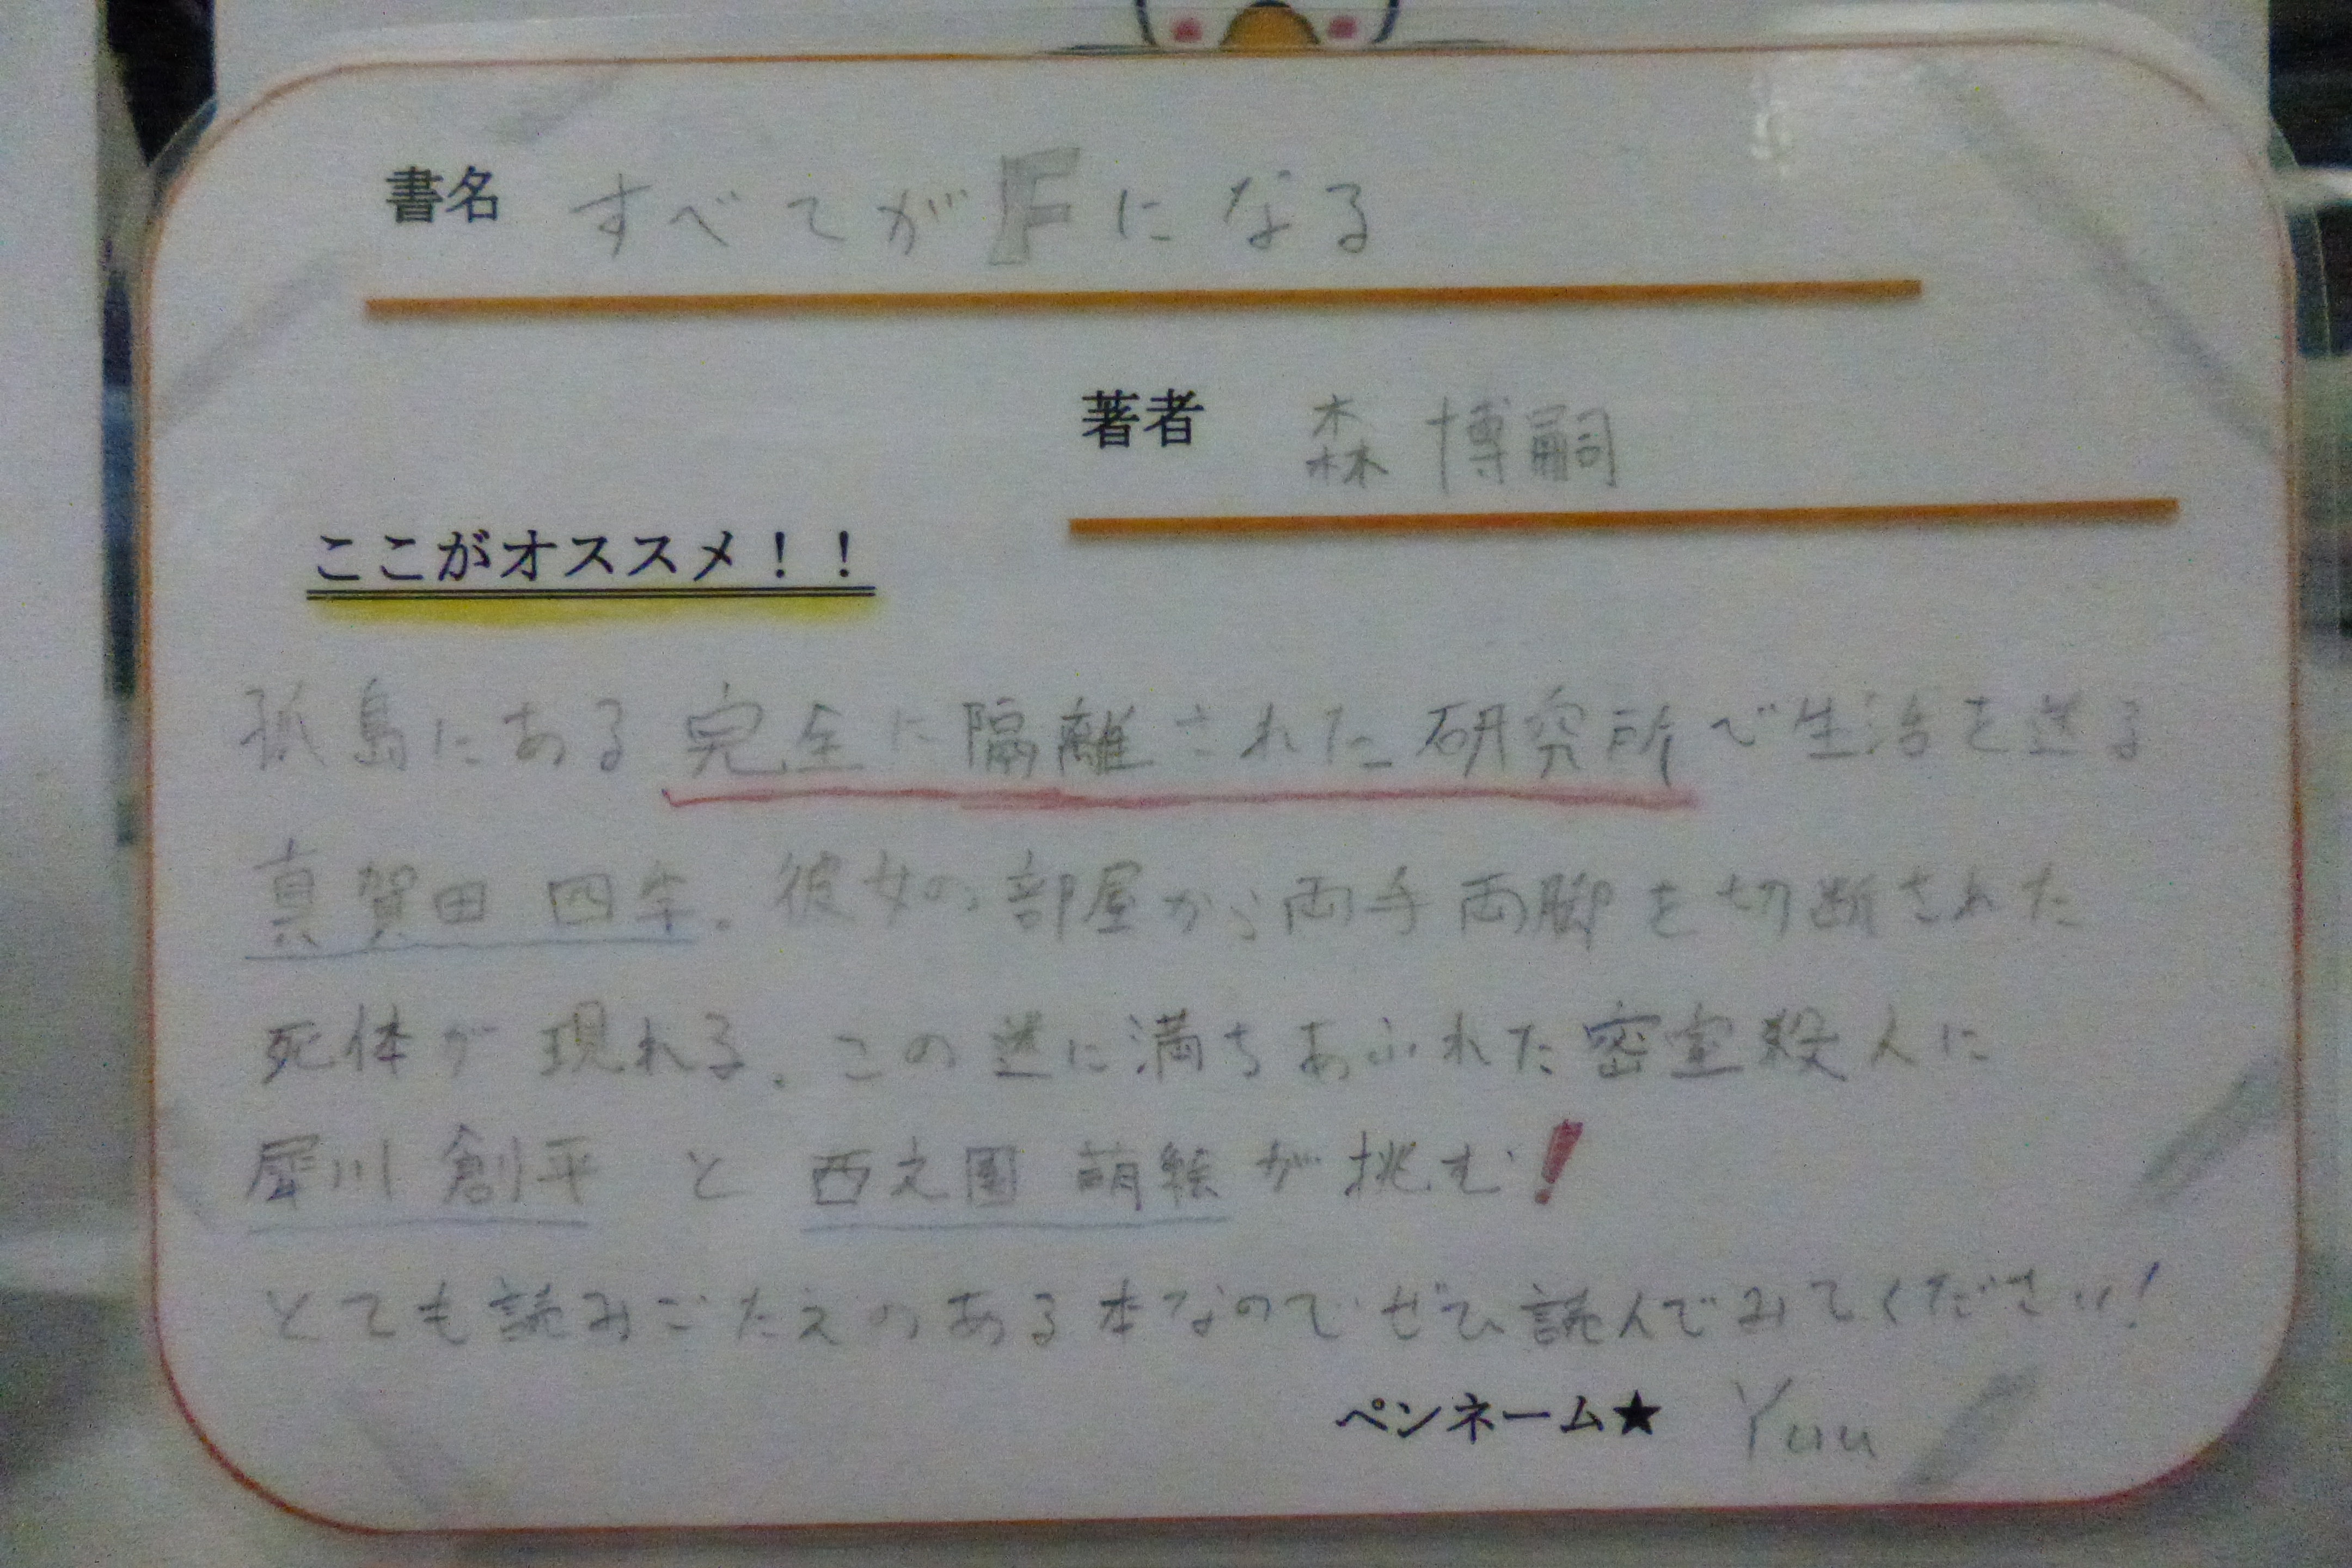 書名 すべてがFになる
著者 森 博嗣
ここがオススメ！！
孤島にある完全に隔離された研究所で生活を送る
真賀田 四季。彼女の部屋から両手両脚を切断された
死体が現れる。この謎に満ちあふれた密室殺人に
犀川 創平 と 西之園 萌絵 が挑む！
とても読みごたえのある本なのでぜひ読んでみてください！
ペンネーム★ Yuu